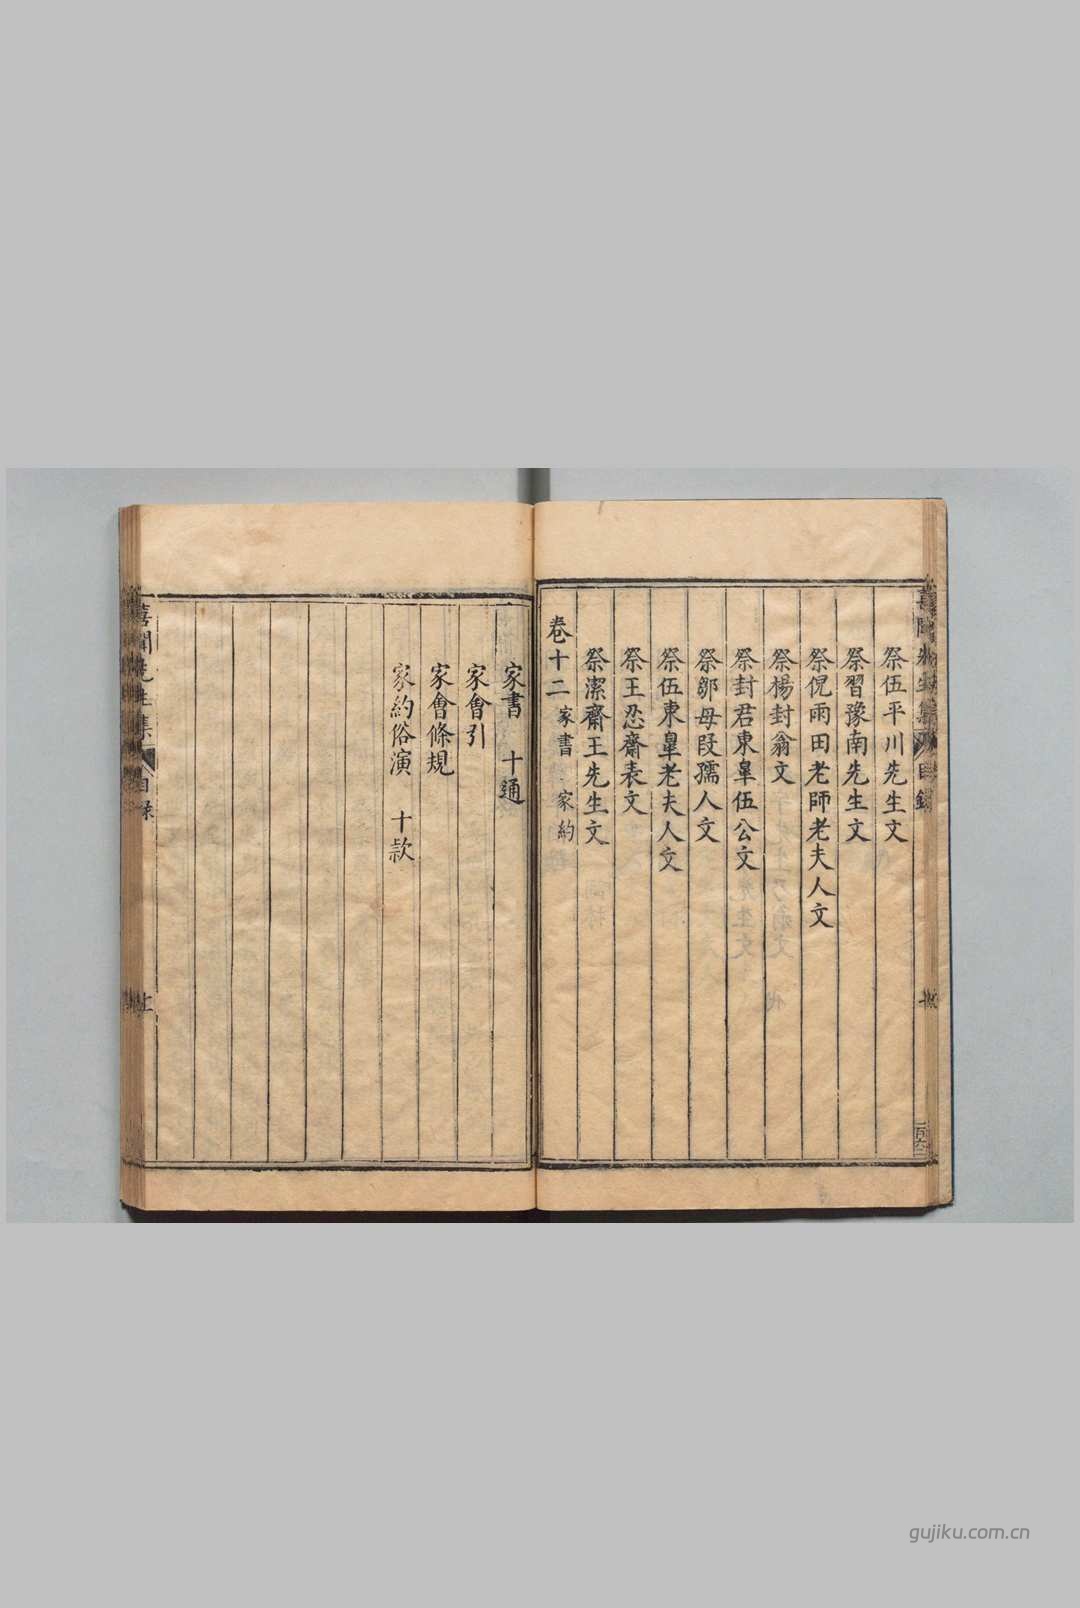 祭伍平川先生文
祭習豫南先生文
祭倪雨田老師老夫人文
祭楊封翁文
祭封君東皐伍公文
祭鄒母段孺人文
祭伍東皐老夫人文
祭王忍齋表文
祭潔齋王先生文
卷十二 家書 家約
家書 十通
家會引
家會條規
家約俗演 十款
喜聞先生集 目録
gujiku.com.cn